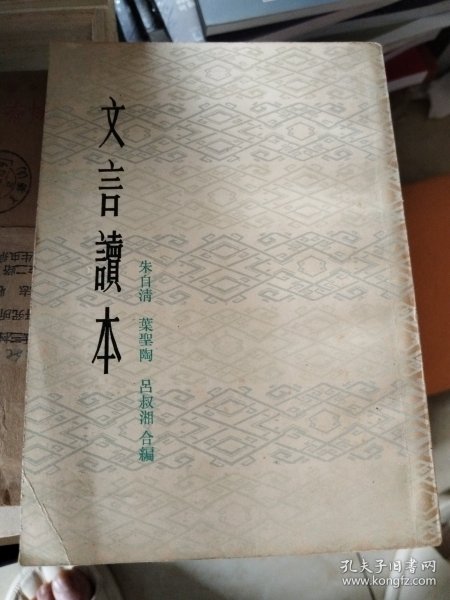 文言讀本
朱自清 葉聖陶 呂叔湘 合編
孔夫子旧书网
www.kongfz.com